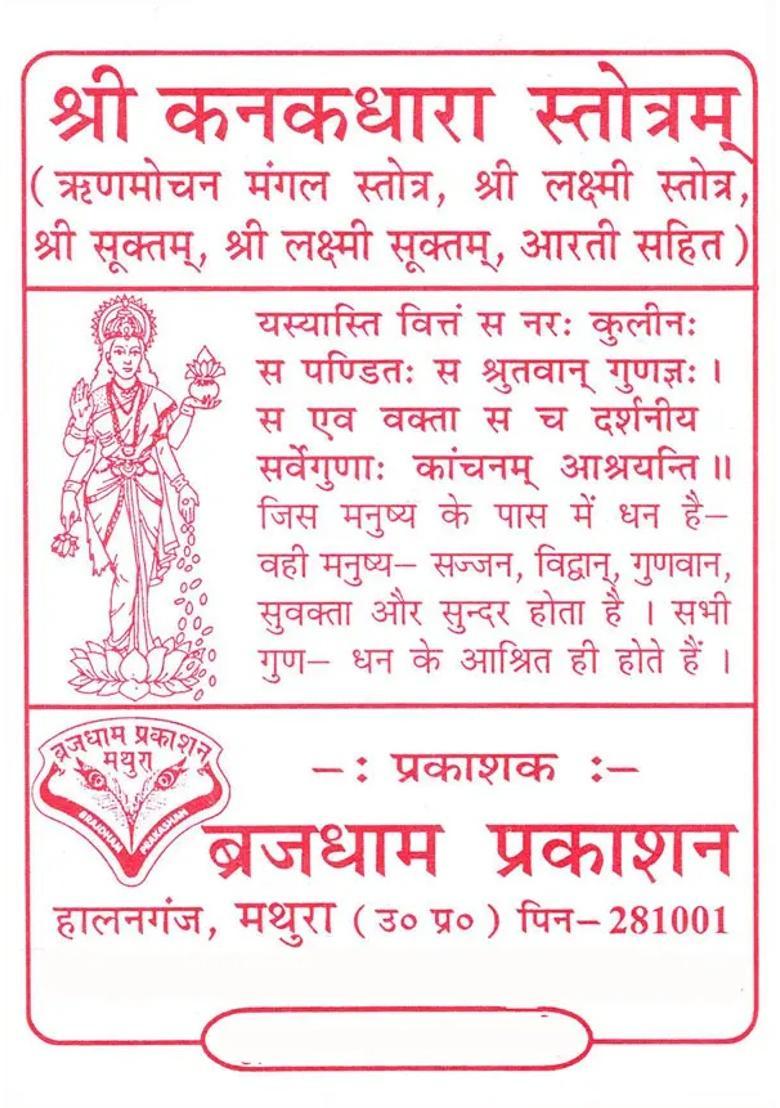 श्री कनकधारा स्तोत्रम्
( ऋणमोचन मंगल स्तोत्र, श्री लक्ष्मी स्तोत्र,
श्री सूक्तम्, श्री लक्ष्मी सूक्तम्, आरती सहित )
यस्यास्ति वित्तं स नरः कुलीनः
स पण्डितः स श्रुतवान् गुणज्ञः ।
स एव वक्ता स च दर्शनीय
सर्वेगुणाः कांचनम् आश्रयन्ति ॥
जिस मनुष्य के पास में धन है–
वही मनुष्य– सज्जन, विद्वान्, गुणवान,
सुवक्ता और सुन्दर होता है । सभी
गुण– धन के आश्रित ही होते हैं ।
ब्रजधाम प्रकाशन
मथुरा
BRAJDHAM PRAKASHAN
–: प्रकाशक :–
ब्रजधाम प्रकाशन
हालनगंज, मथुरा ( उ० प्र० ) पिन– 281001